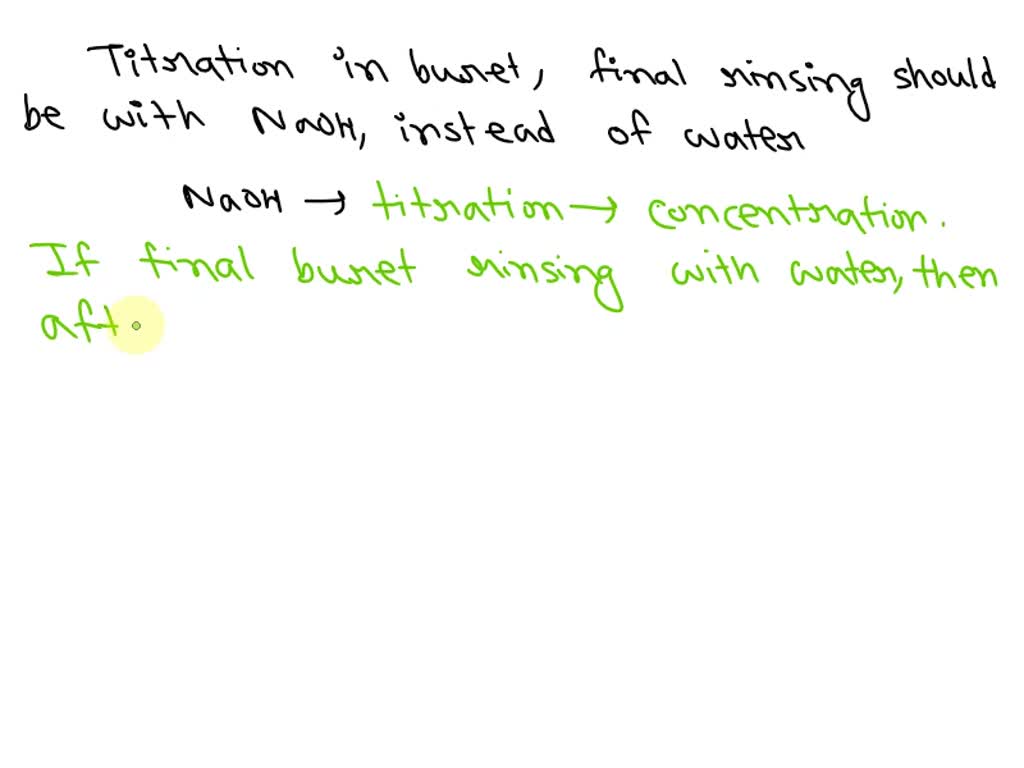 Titration in buret, final rinsing should
be with NaOH, instead of water
NaOH → titration → concentration.
If final buret rinsing with water, then
aft